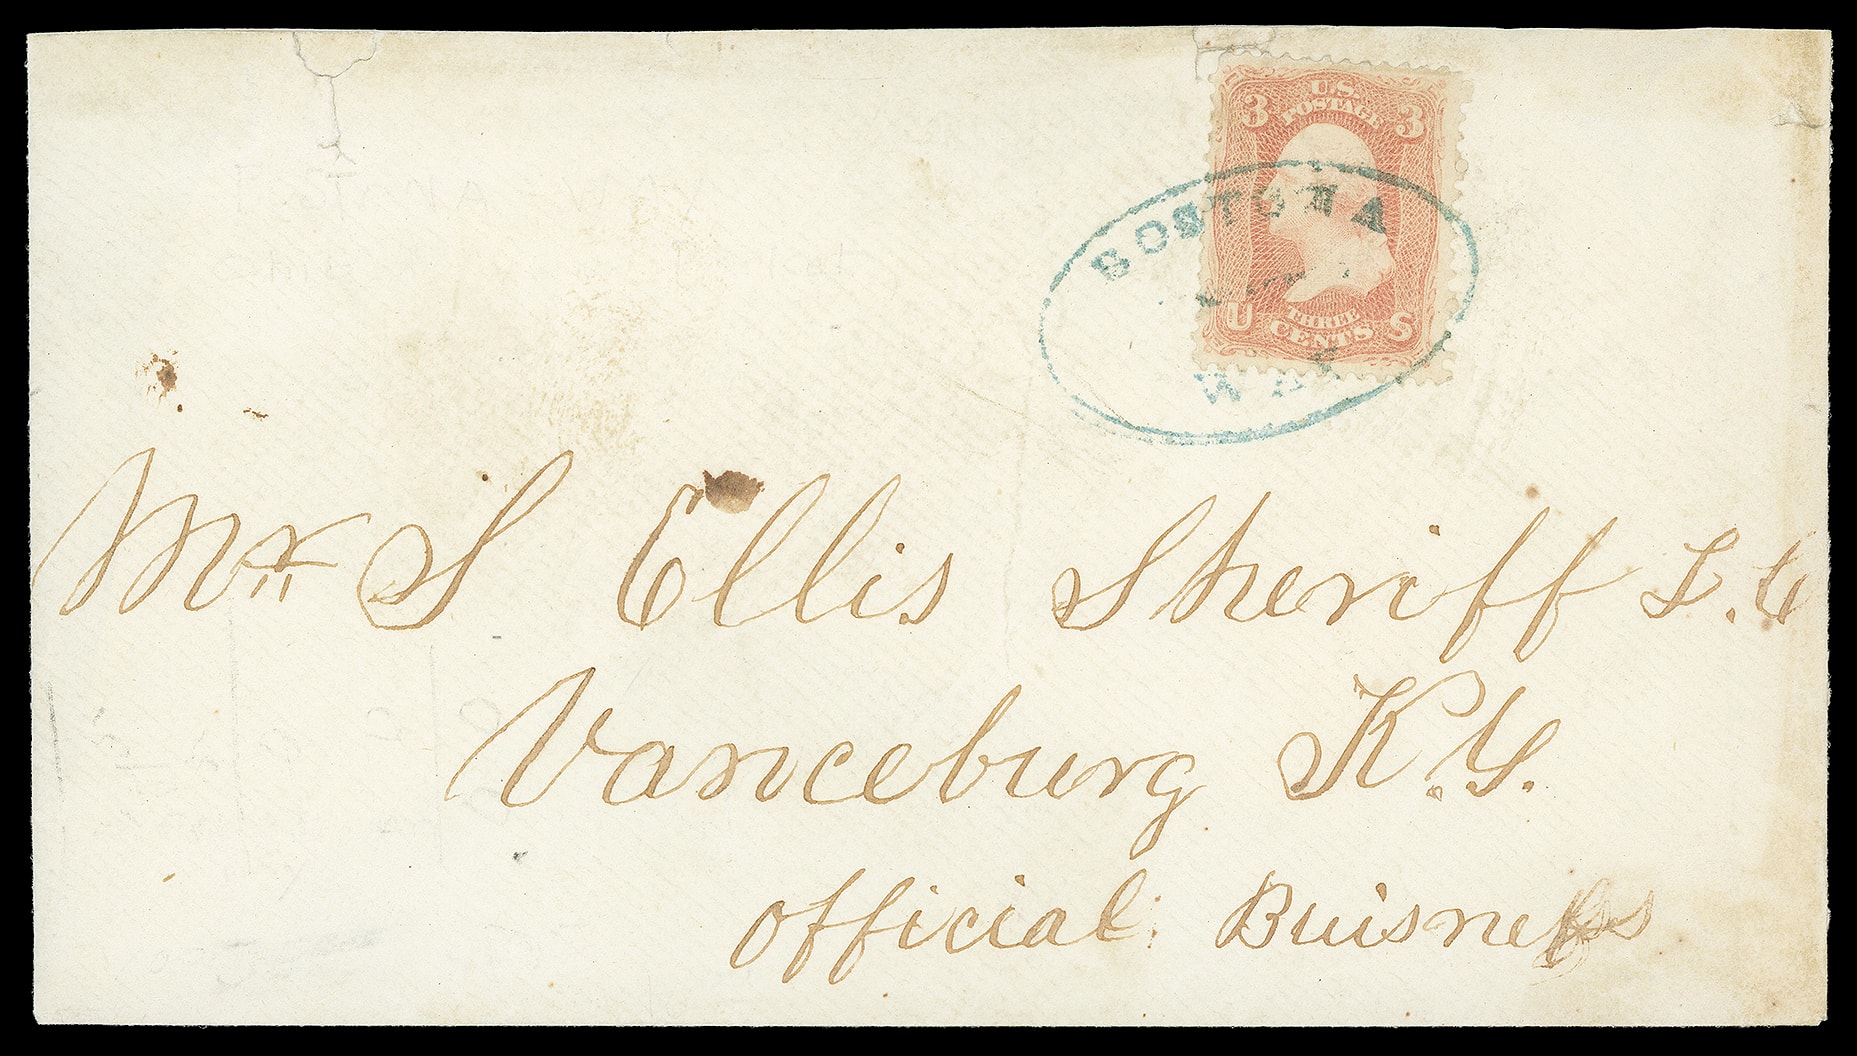 3 U.S. 3
POSTAGE
BOSTONA
U THREE S
CENTS
Mr S Ellis Sheriff L. C
Vanceburg K.Y.
Official Buisness